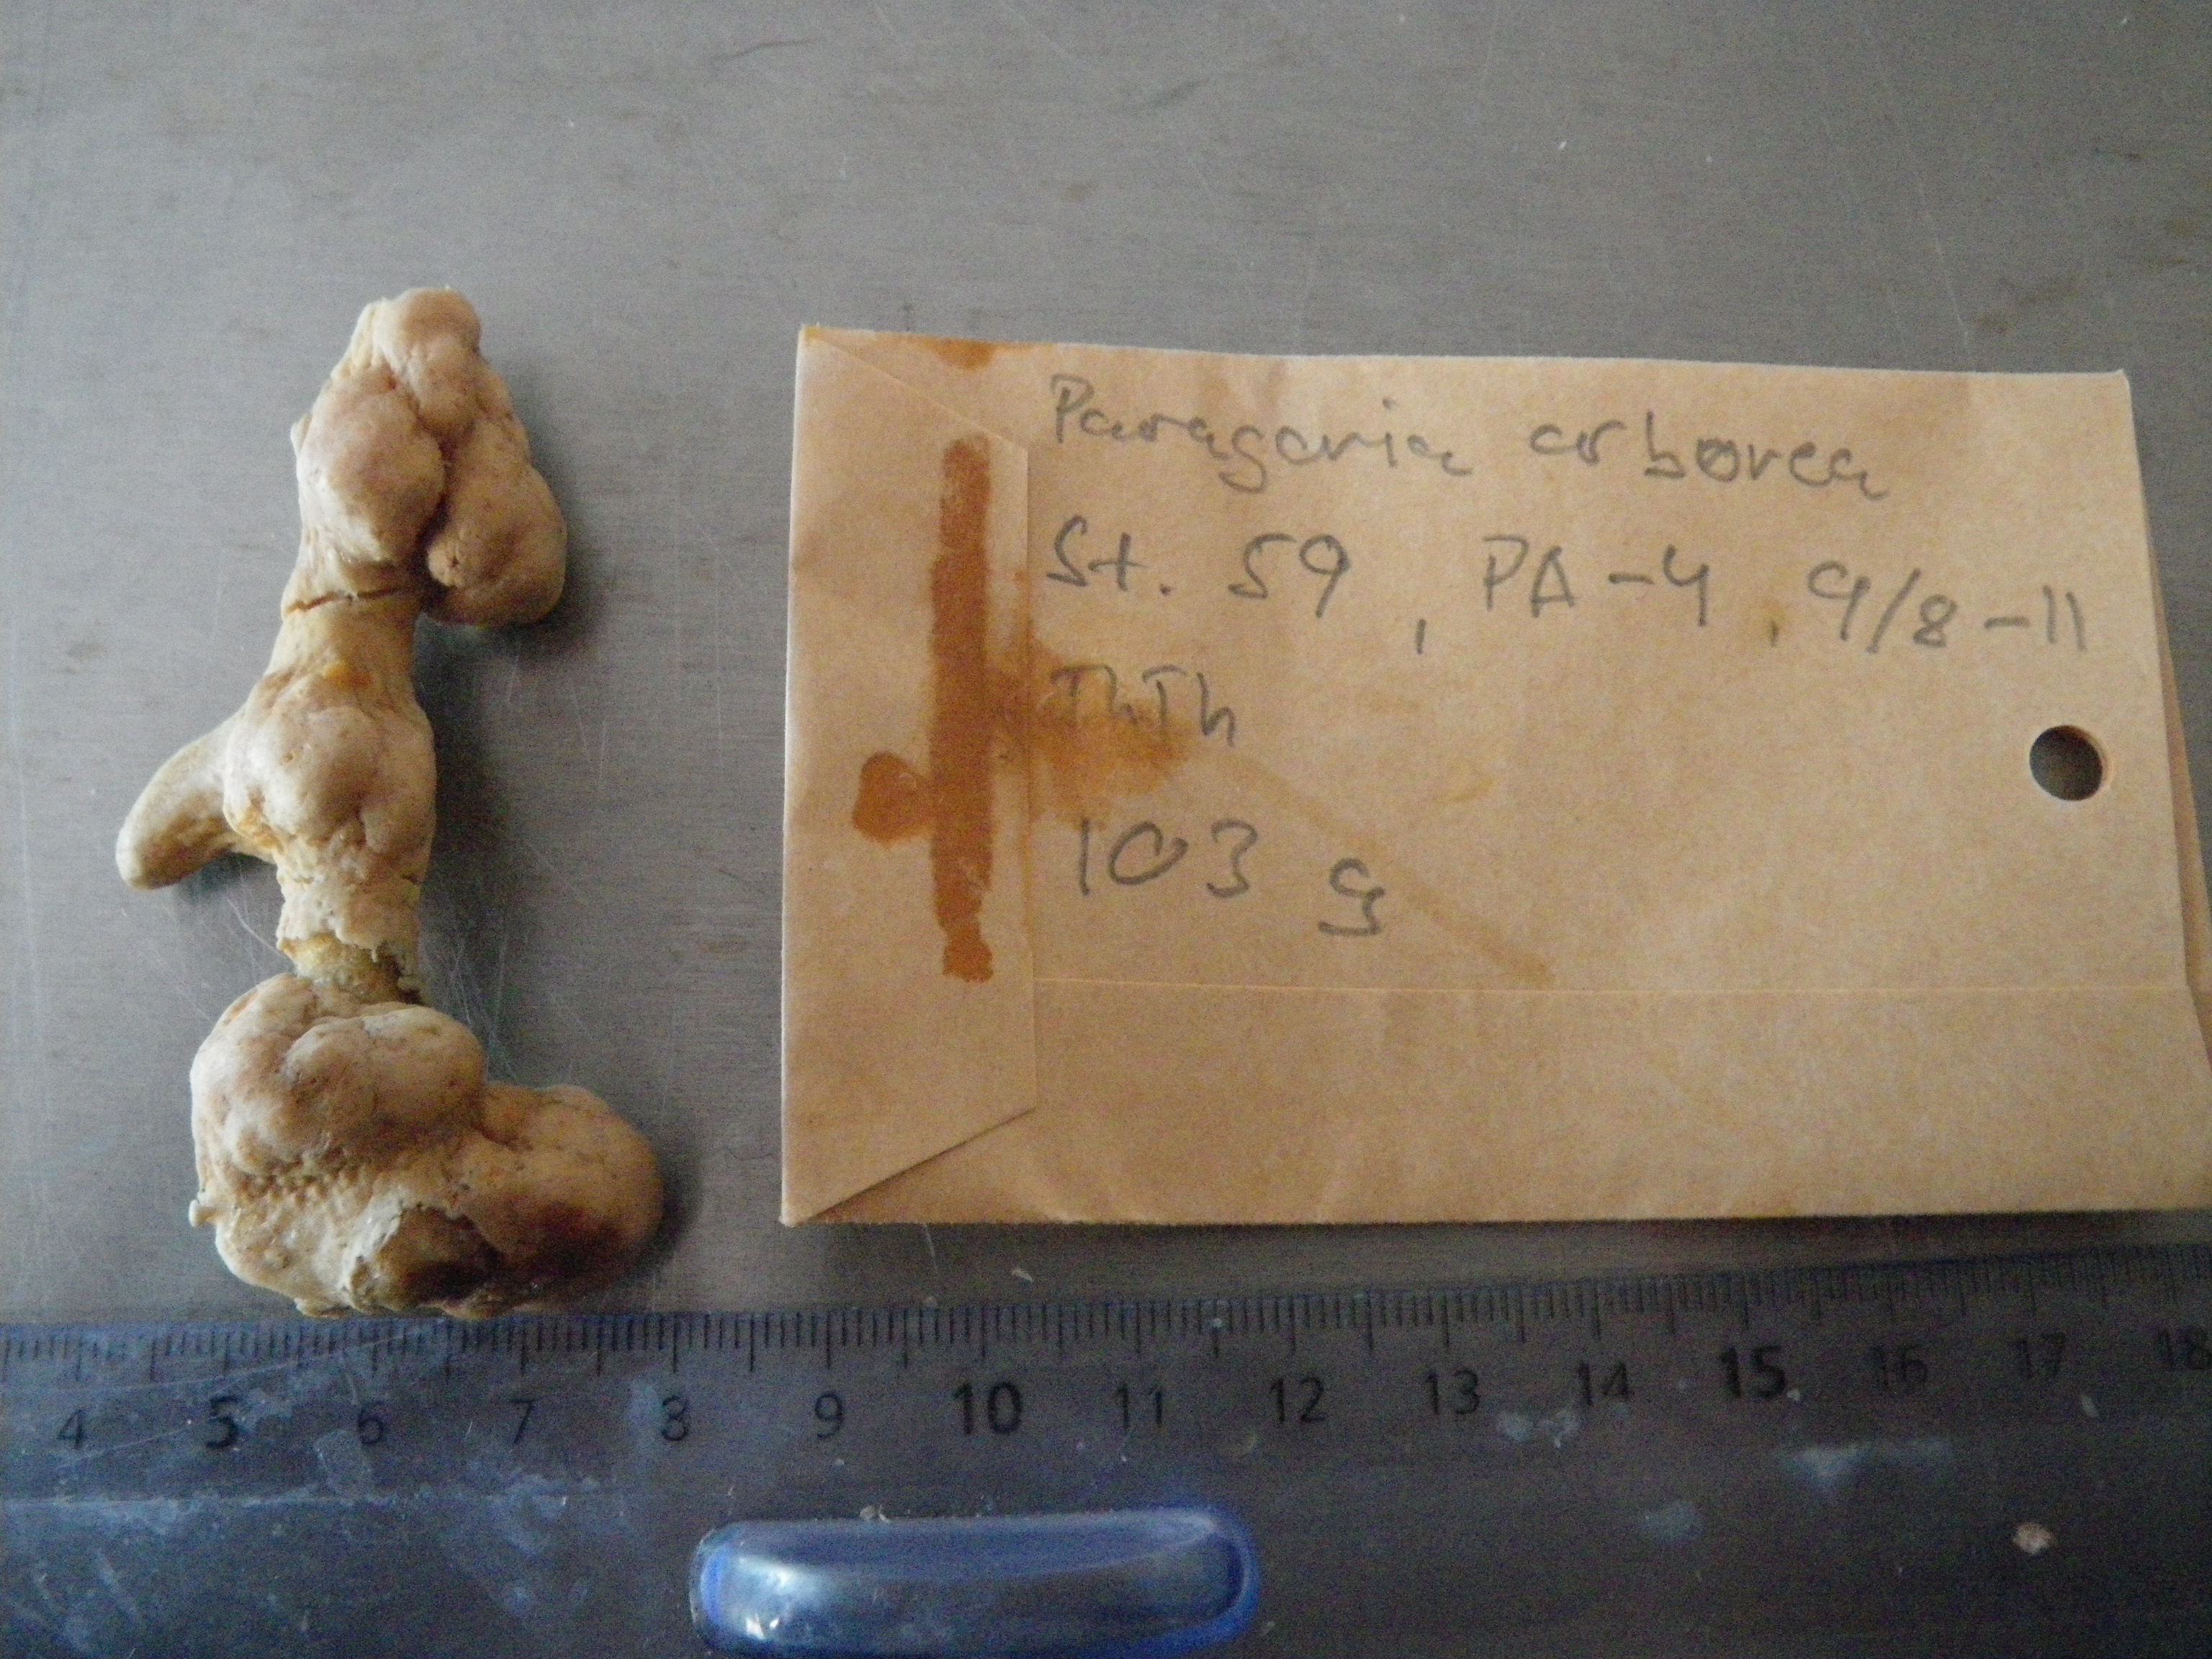 Paragorgia arborea
St. 59, PA-4, 9/8-11
ThTh
103 g
4 5 6 7 8 9 10 11 12 13 14 15 16 17 18